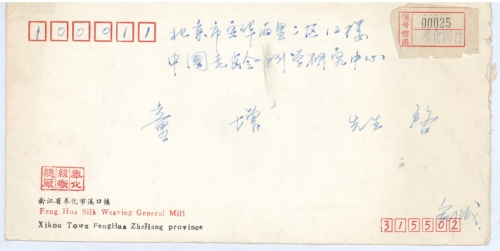 100011
北京市安华西里二区12楼
中国老龄科学研究中心
00025
童 增 先生 启
奉化
浙江省奉化市溪口镇
Feng Hua Silk Weaving General Mill
Xikou Town FengHua ZheJiang province
315502